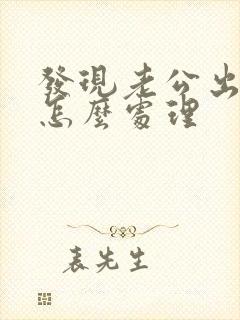 發現老公出
怎麼處理
表先生